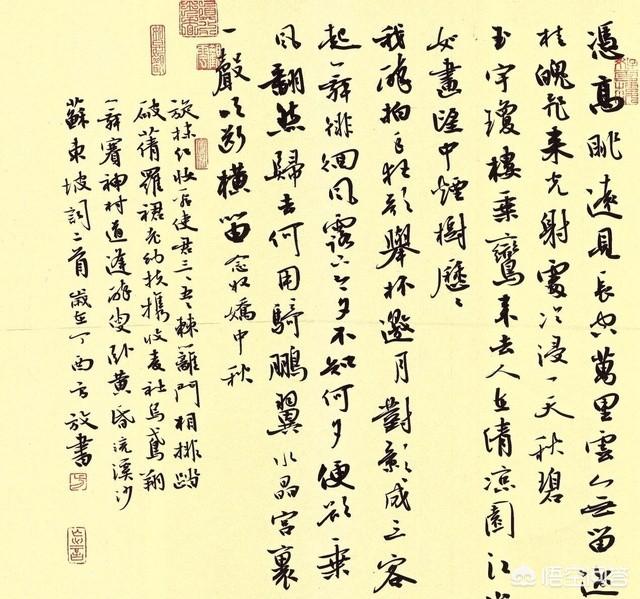 憑高眺遠見長空萬里雲無留迹
桂魄飛來光射處冷浸一天秋碧
玉宇瓊樓乘鸞來去人在清涼國江山
如畫望中煙樹歷〻
我醉拍手狂歌舉杯邀月對影成三客
起舞徘徊風露下今夕不知何夕便欲乘
風翻然歸去何用騎鵬翼水晶宮裏
一聲吹斷橫笛 念奴嬌中秋
旋抹紅妝看使君三〻五〻棘籬門相排踏
破蒨羅裙老幼扶攜收麥社烏鳶翔
舞賽神村道逢醉叟臥黃昏浣溪沙
蘇東坡詞二首 歲在丁酉方放書
悟空问答